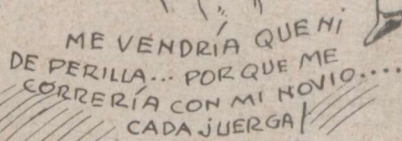 ME VENDRÍA QUE NI
DE PERILLA... POR QUE ME
CORRERÍA CON MI NOVIO....
CADA JUERGA!